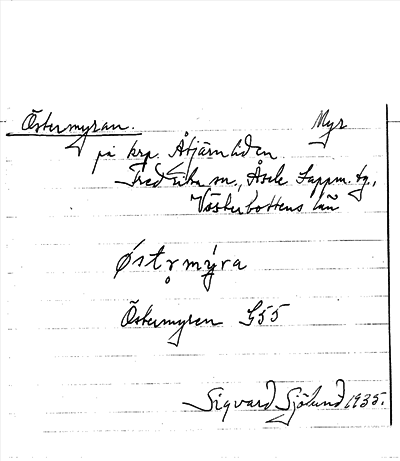 Östermyran. Myr
på krp. Åtjärnliden
Fredrika sn., Åsele Lappm. tg.,
Västerbottens län
Østr̥mýra
Östermyren G55
Sigvard Sjölund 1935.